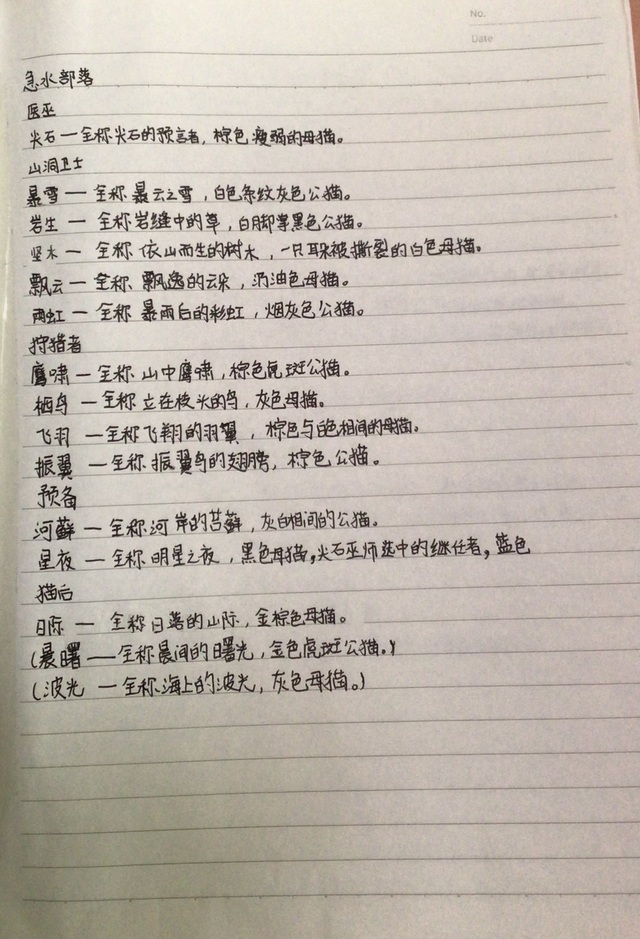 No.
Date
急水部落
医巫
尖石一全称尖石的预言者,棕色瘦弱的母猫。
山洞卫士
暴雪一全称暴云之雪,白色条纹灰色公猫。
岩生一全称岩缝中的草,白脚掌黑色公猫。
坚木一全称依山而生的树木,一只耳朵被撕裂的白色母猫。
飘云一全称飘逸的云朵,奶油色母猫。
雨虹一全称暴雨白的彩虹,烟灰色公猫。
狩猎者
鹰啸一全称山中鹰啸,棕色虎斑公猫。
栖鸟一全称立在枝头的鸟,灰色母猫。
飞羽一全称飞翔的羽翼,棕色与白色相间的母猫。
振翼一全称振翼鸟的翅膀,棕色公猫。
预备
河藓一全称河岸的苔藓,灰白相间的公猫。
星夜一全称明星之夜,黑色母猫,尖石巫师选中的继任者,蓝色
猫后
日际一全称日落的山际,金棕色母猫。
(晨曙——全称晨间的曙光,金色虎斑公猫。)
(波光一全称海上的波光,灰色母猫。)